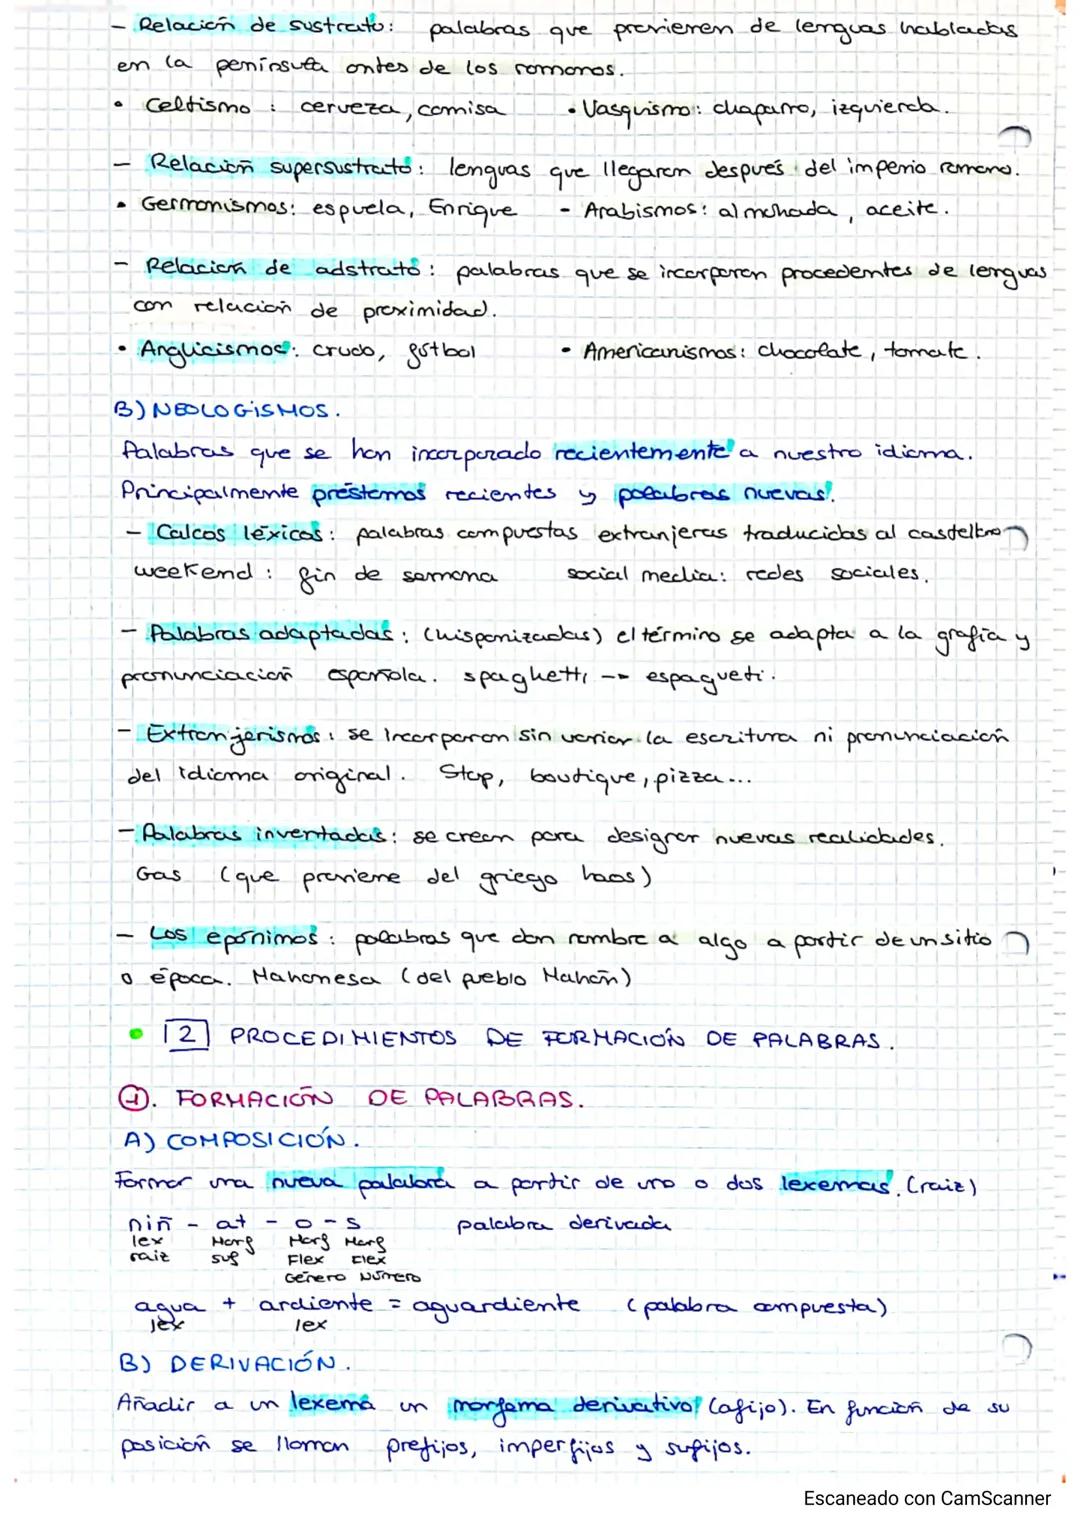 - Relación de sustrato: palabras que provienen de lenguas habladas
en la península antes de los romanos.
• Celtismo: cerveza, camisa • Vasquismo: chaparro, izquierda.
- Relación supersustrato: lenguas que llegaron después del imperio romano.
• Germanismos: espuela, Enrique - Arabismos: almohada, aceite.
- Relación de adstrato: palabras que se incorporan procedentes de lenguas
con relación de proximidad.
• Anglicismos: crudo, fútbol • Americanismos: chocolate, tomate.
B) NEOLOGISMOS.
Palabras que se han incorporado recientemente a nuestro idioma.
Principalmente préstamos recientes y palabras nuevas.
- Calcos léxicos: palabras compuestas extranjeras traducidas al castellano
weekend: fin de semana social media: redes sociales.
- Palabras adaptadas: (hispanizadas) el término se adapta a la grafía y
pronunciación española. spaghetti --> espagueti.
- Extranjerismos: se incorporan sin variar la escritura ni pronunciación
del idioma original. Stop, boutique, pizza...
- Palabras inventadas: se crean para designar nuevas realidades.
Gas (que proviene del griego haos)
- Los epónimos: palabras que dan nombre a algo a partir de un sitio
o época. Mahonesa (del pueblo Mahón)
• 2 PROCEDIMIENTOS DE FORMACIÓN DE PALABRAS.
1. FORMACIÓN DE PALABRAS.
A) COMPOSICIÓN.
Formar una nueva palabra a partir de uno o dos lexemas. (raiz)
niñ - at - o - s palabra derivada
lex Morf Morf Morf
raiz suf Flex Flex
Género Número
agua + ardiente = aguardiente (palabra compuesta)
lex lex
B) DERIVACIÓN.
Añadir a un lexema un morfema derivativo (afijo). En función de su
posición se llaman prefijos, imperfijos y sufijos.
Escaneado con CamScanner